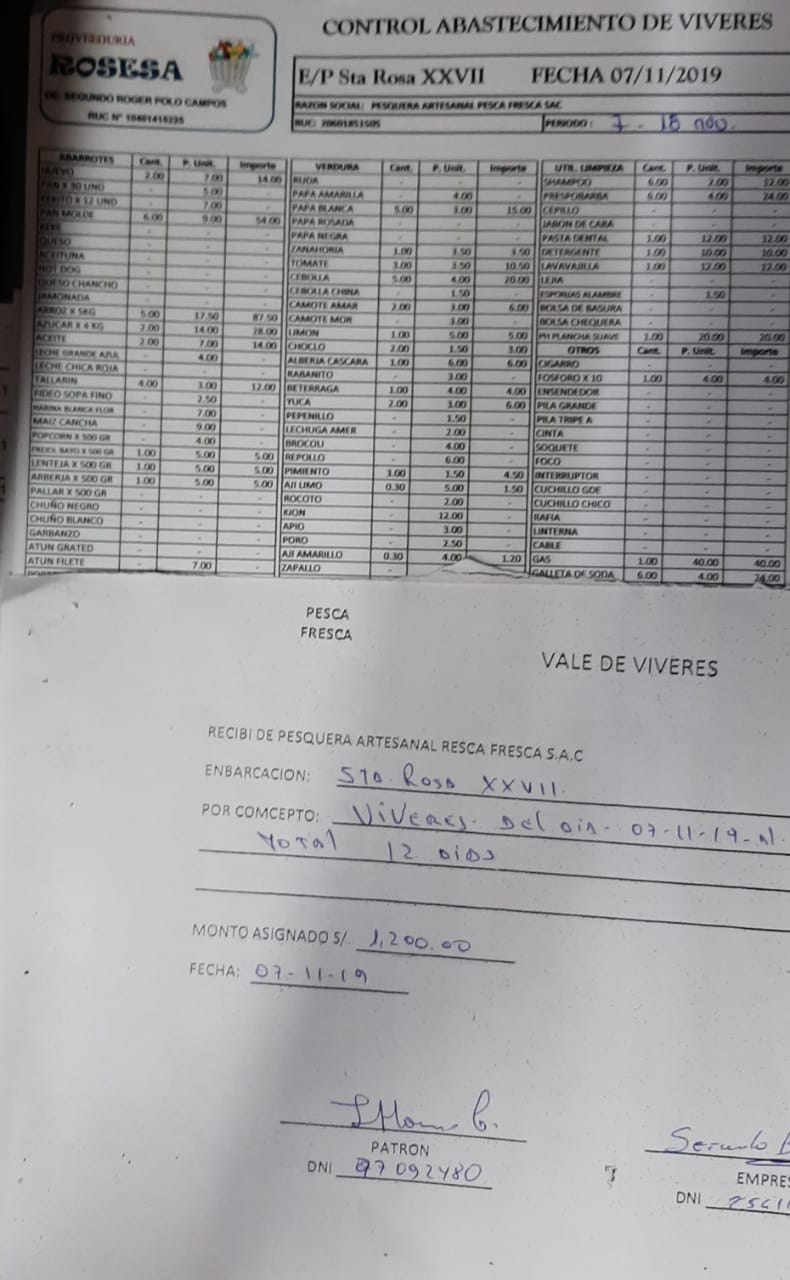 PROVEEDURIA
ROSESA
DE: SEGUNDO ROGER POLO CAMPOS
RUC N° 10401415235
CONTROL ABASTECIMIENTO DE VIVERES
E/P Sta Rosa XXVII FECHA 07/11/2019
RAZON SOCIAL: PESQUERA ARTESANAL PESCA FRESCA SAC
RUC: 20601851505 PERIODO: 7 - 18 nov.
ABARROTES Cant. P. Unit. Importe VERDURA Cant. P. Unit. Importe UTIL. LIMPIEZA Cant. P. Unit. Importe
HUEVO 2.00 7.00 14.00 RUDA - - - SHAMPOO 6.00 2.00 12.00
PAN X 30 UNO - 5.00 - PAPA AMARILLA - 4.00 - PRESPOBARBA 6.00 4.00 24.00
X 12 UNO - 7.00 - PAPA BLANCA 5.00 3.00 15.00 CEPILLO - - -
PAN MOLDE 6.00 9.00 54.00 PAPA ROSADA - - - JABON DE CARA - - -
PAPA NEGRA - - - PASTA DENTAL 1.00 12.00 12.00
QUESO - - - ZANAHORIA 1.00 3.50 3.50 DETERGENTE 1.00 10.00 10.00
ACEITUNA - - - TOMATE 3.00 3.50 10.50 LAVAVAJILLA 1.00 12.00 12.00
HOT DOG - - - CEBOLLA 5.00 4.00 20.00 LEJIA - - -
QUESO CHANCHO - - - CEBOLLA CHINA - 1.50 - ESPONJAS ALAMBRE - 1.50 -
JAMONADA - - - CAMOTE AMAR 2.00 3.00 6.00 BOLSA DE BASURA - - -
ARROZ X 5KG 5.00 17.50 87.50 CAMOTE MOR - 3.00 - BOLSA CHEQUERA - - -
AZUCAR X 4 KG 2.00 14.00 28.00 LIMON 1.00 5.00 5.00 PH PLANCHA SUAVE 1.00 20.00 20.00
ACEITE 2.00 7.00 14.00 CHOCLO 2.00 1.50 3.00 OTROS Cant. P. Unit. Importe
LECHE GRANDE AZUL - 4.00 - ALBERJA CASCARA 1.00 6.00 6.00 CIGARRO - - -
LECHE CHICA ROJA - - - RABANITO - 3.00 - FOSFORO X 10 1.00 4.00 4.00
TALLARIN 4.00 3.00 12.00 BETERRAGA 1.00 4.00 4.00 ENSENDEDOR - - -
FIDEO SOPA FINO - 2.50 - YUCA 2.00 3.00 6.00 PILA GRANDE - - -
HARINA BLANCA FLOR - 7.00 - PEPENILLO - 1.50 - PILA TRIPE A - - -
MAIZ CANCHA - 9.00 - LECHUGA AMER - 2.00 - CINTA - - -
POPCORN X 500 GR - 4.00 - BROCOLI - 4.00 - SOQUETE - - -
FREJOL BAYO X 500 GR 1.00 5.00 5.00 REPOLLO - 6.00 - FOCO - - -
LENTEJA X 500 GR 1.00 5.00 5.00 PIMIENTO 3.00 1.50 4.50 INTERRUPTOR - - -
ARBERJA X 500 GR 1.00 5.00 5.00 AJI LIMO 0.30 5.00 1.50 CUCHILLO GDE - - -
PALLAR X 500 GR - - - ROCOTO - 2.00 - CUCHILLO CHICO - - -
CHUÑO NEGRO - - - KION - 12.00 - RAFIA - - -
CHUÑO BLANCO - - - APIO - 3.00 - LINTERNA - - -
GARBANZO - - - PORO - 2.50 - CABLE - - -
ATUN GRATED - - - AJI AMARILLO 0.30 4.00 1.20 GAS 1.00 40.00 40.00
ATUN FILETE - 7.00 - ZAPALLO - GALLETA DE SODA 6.00 4.00 24.00
PESCA
FRESCA
VALE DE VIVERES
RECIBI DE PESQUERA ARTESANAL RESCA FRESCA S.A.C
ENBARCACION: STA. Rosa XXVII.
POR COMCEPTO: Viveres. Del Dia- 07-11-19-al
total 12 dias
MONTO ASIGNADO S/. 1,200.00
FECHA: 07-11-19
PATRON
DNI 97092480
EMPRES
DNI